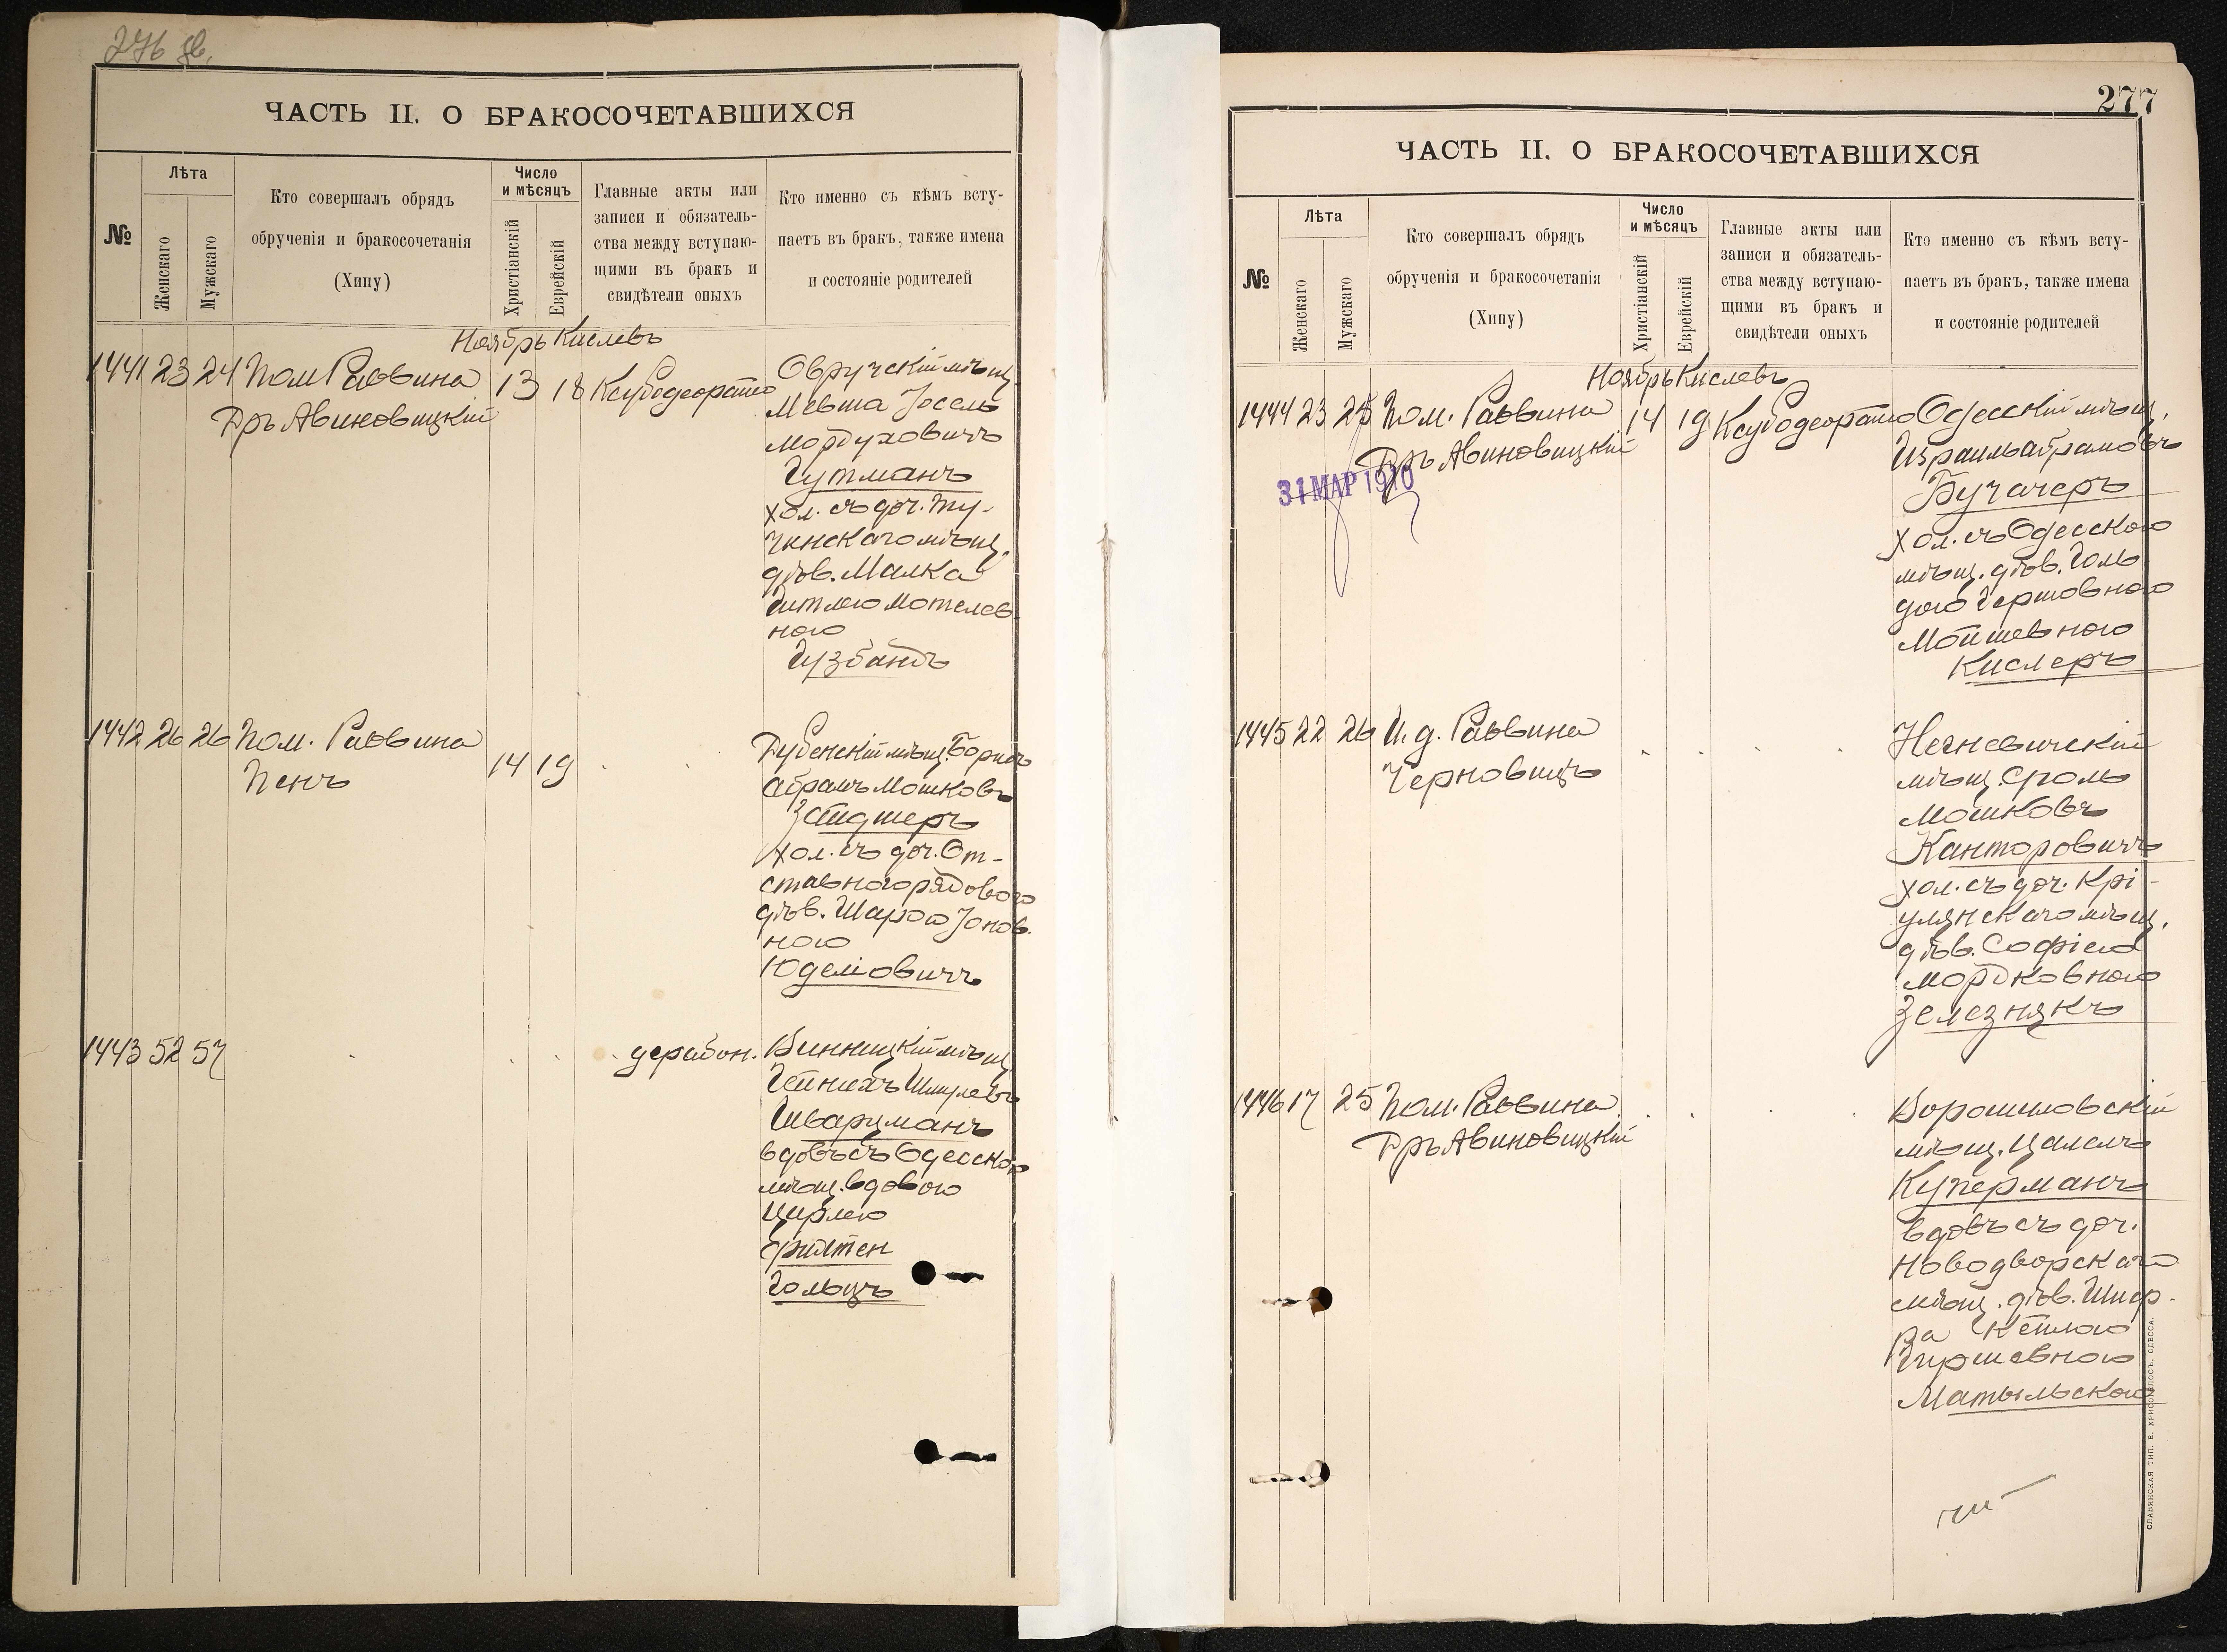 ЧАСТЬ II. О БРАКОСОЧЕТАВШИХСЯ
№
Лѣта
Женскаго
Мужскаго
Кто совершалъ обрядъ
обрученія и бракосочетанія
(Хипу)
Число
и мѣсяцъ
Христіанскій
Еврейскій
Главные акты или
записи и обязатель-
ства между вступаю-
щими въ бракъ и
свидѣтели оныхъ
Кто именно съ кѣмъ всту-
паетъ въ бракъ, также имена
и состояніе родителей
Ноябрь Кислевъ
1441 23 24 Пом Раввина 13 18
Дръ Авиновицкій
Овручскій мѣщ.
Мевша Іосель
Мордуховичъ
Гутманъ
хол. съ доч. Ту-
чинскаго мѣщ.
дѣв. Малка
Гитлею Мотелев
ною
Гузбандъ
1442 26 26 Пом. Раввина 14 19
Пенъ
Дубенскій мѣщ. Борисъ
Абрамъ Мошковъ
Зейдшеръ
хол. съ доч. От-
ставного рядового
дѣв. Шарою Іонов.
ною
Юделіовичъ
1443 52 57
Винницкій мѣщ.
Гейнихъ Шмулевъ
Шварцманъ
вдовъ съ Одесскою
мѣщ. вдовою
Цирлею
Гольцъ
277
ЧАСТЬ II. О БРАКОСОЧЕТАВШИХСЯ
№
Лѣта
Женскаго
Мужскаго
Кто совершалъ обрядъ
обрученія и бракосочетанія
(Хипу)
Число
и мѣсяцъ
Христіанскій
Еврейскій
Главные акты или
записи и обязатель-
ства между вступаю-
щими въ бракъ и
свидѣтели оныхъ
Кто именно съ кѣмъ всту-
паетъ въ бракъ, также имена
и состояніе родителей
Ноябрь Кислевъ
1444 23 25 Пом. Раввина 14 19
Дръ Авиновицкій
31 МАР 1910
Одесскій мѣщ.
Израиль Абрамовъ
Бучачеръ
хол. съ Одесскою
мѣщ. дѣв. Голь
дою Гершовною
Мошшевною
Кислеръ
1445 22 26 И. д. Раввина
Черновицъ
Негневичскій
мѣщ. Сроль
Мошковъ
Канторовичъ
хол. съ доч. Крі-
улянскаго мѣщ.
дѣв. Софіею
Мордковною
Зелезнякъ
1446 17 25 Пом. Раввина
Дръ Авиновицкій
Ворошиловскій
мѣщ. Цалелъ
Куперманъ
вдовъ съ доч.
Новодворскаго
мѣщ. дѣв. Шпер-
Гиршевною
Матыльскою
СЛАВЯНСКАЯ ТИП. Е. ХРИСОГЕЛОСЪ, ОДЕССА.